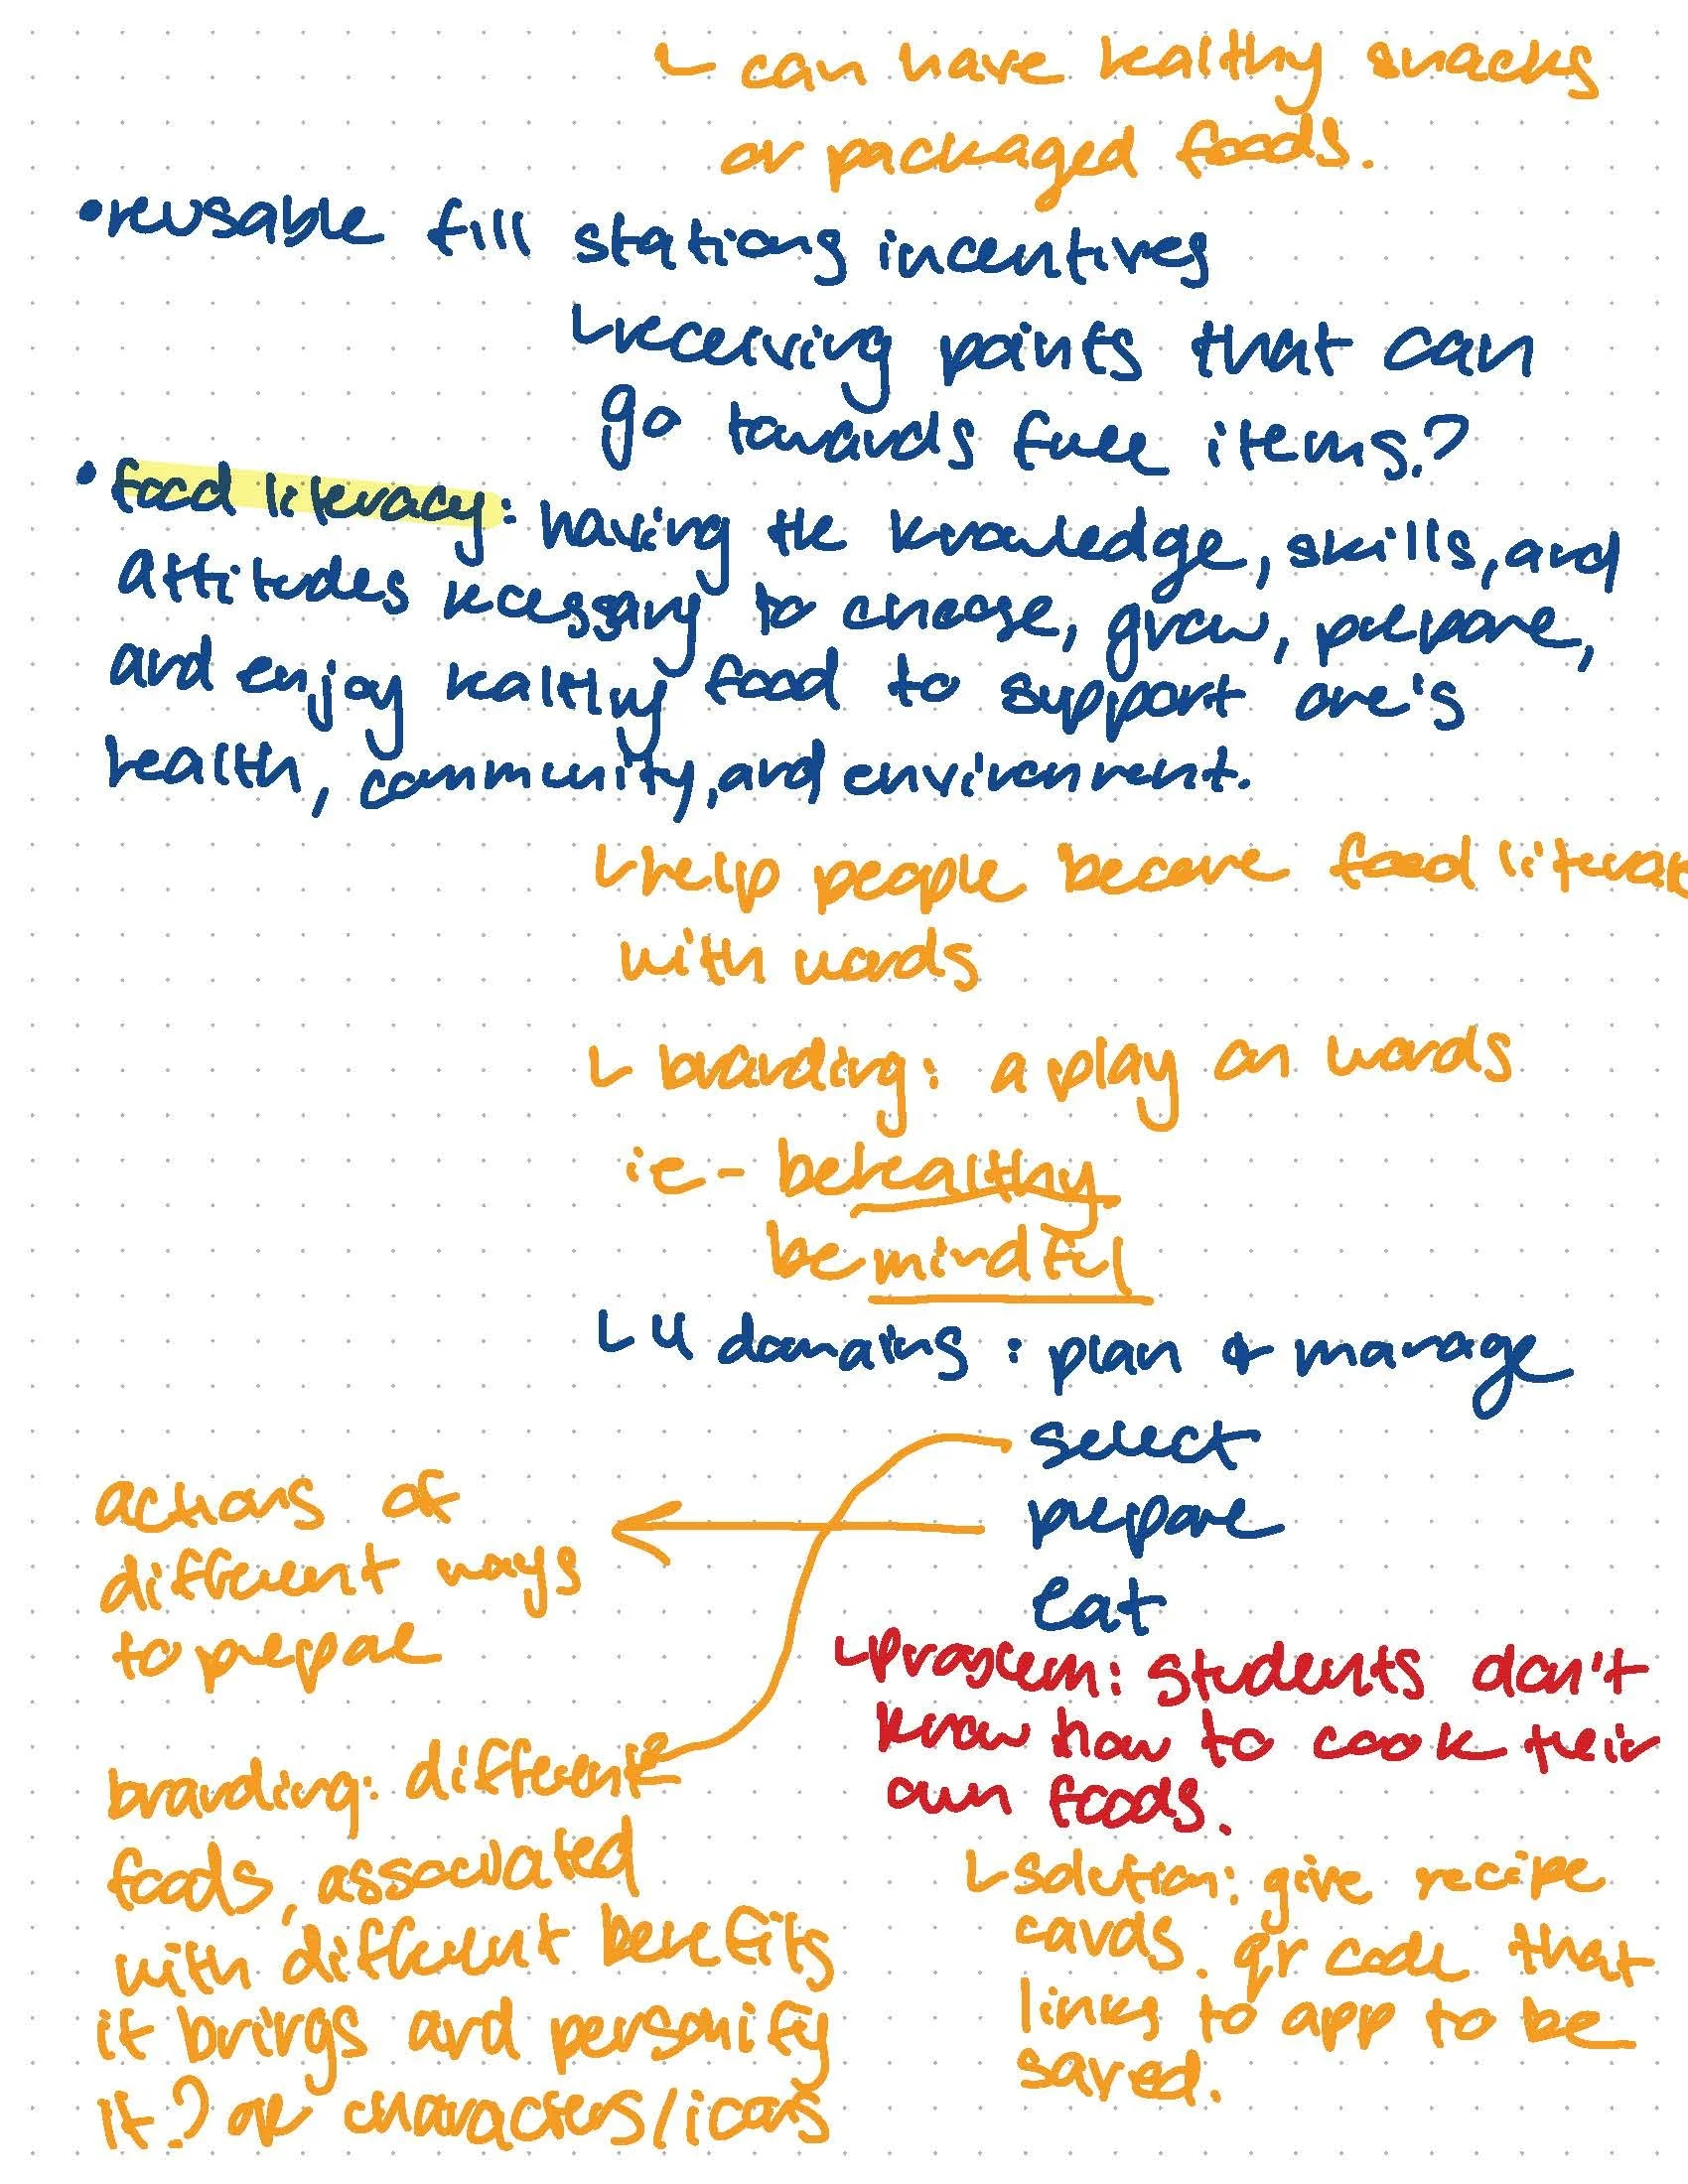 ↳ can have healthy snacks
or packaged foods.
• reusable fill stations incentives
↳ receiving points that can
go towards full items?
• food literacy: having the knowledge, skills, and
attitudes necessary to choose, grow, prepare,
and enjoy healthy food to support one's
health, community, and environment.
↳ help people become food literat
with words
↳ branding: a play on words
ie - behealthy
bemindful
↳ 4 domains: plan & manage
select
prepare
eat
actions of
different ways
to prepare
branding: different
foods, associated
with different benefits
it brings and personify
it? or characters/icons
↳ problem: students don't
know how to cook their
own foods.
↳ solution: give recipe
cards. qr code that
links to app to be
saved.